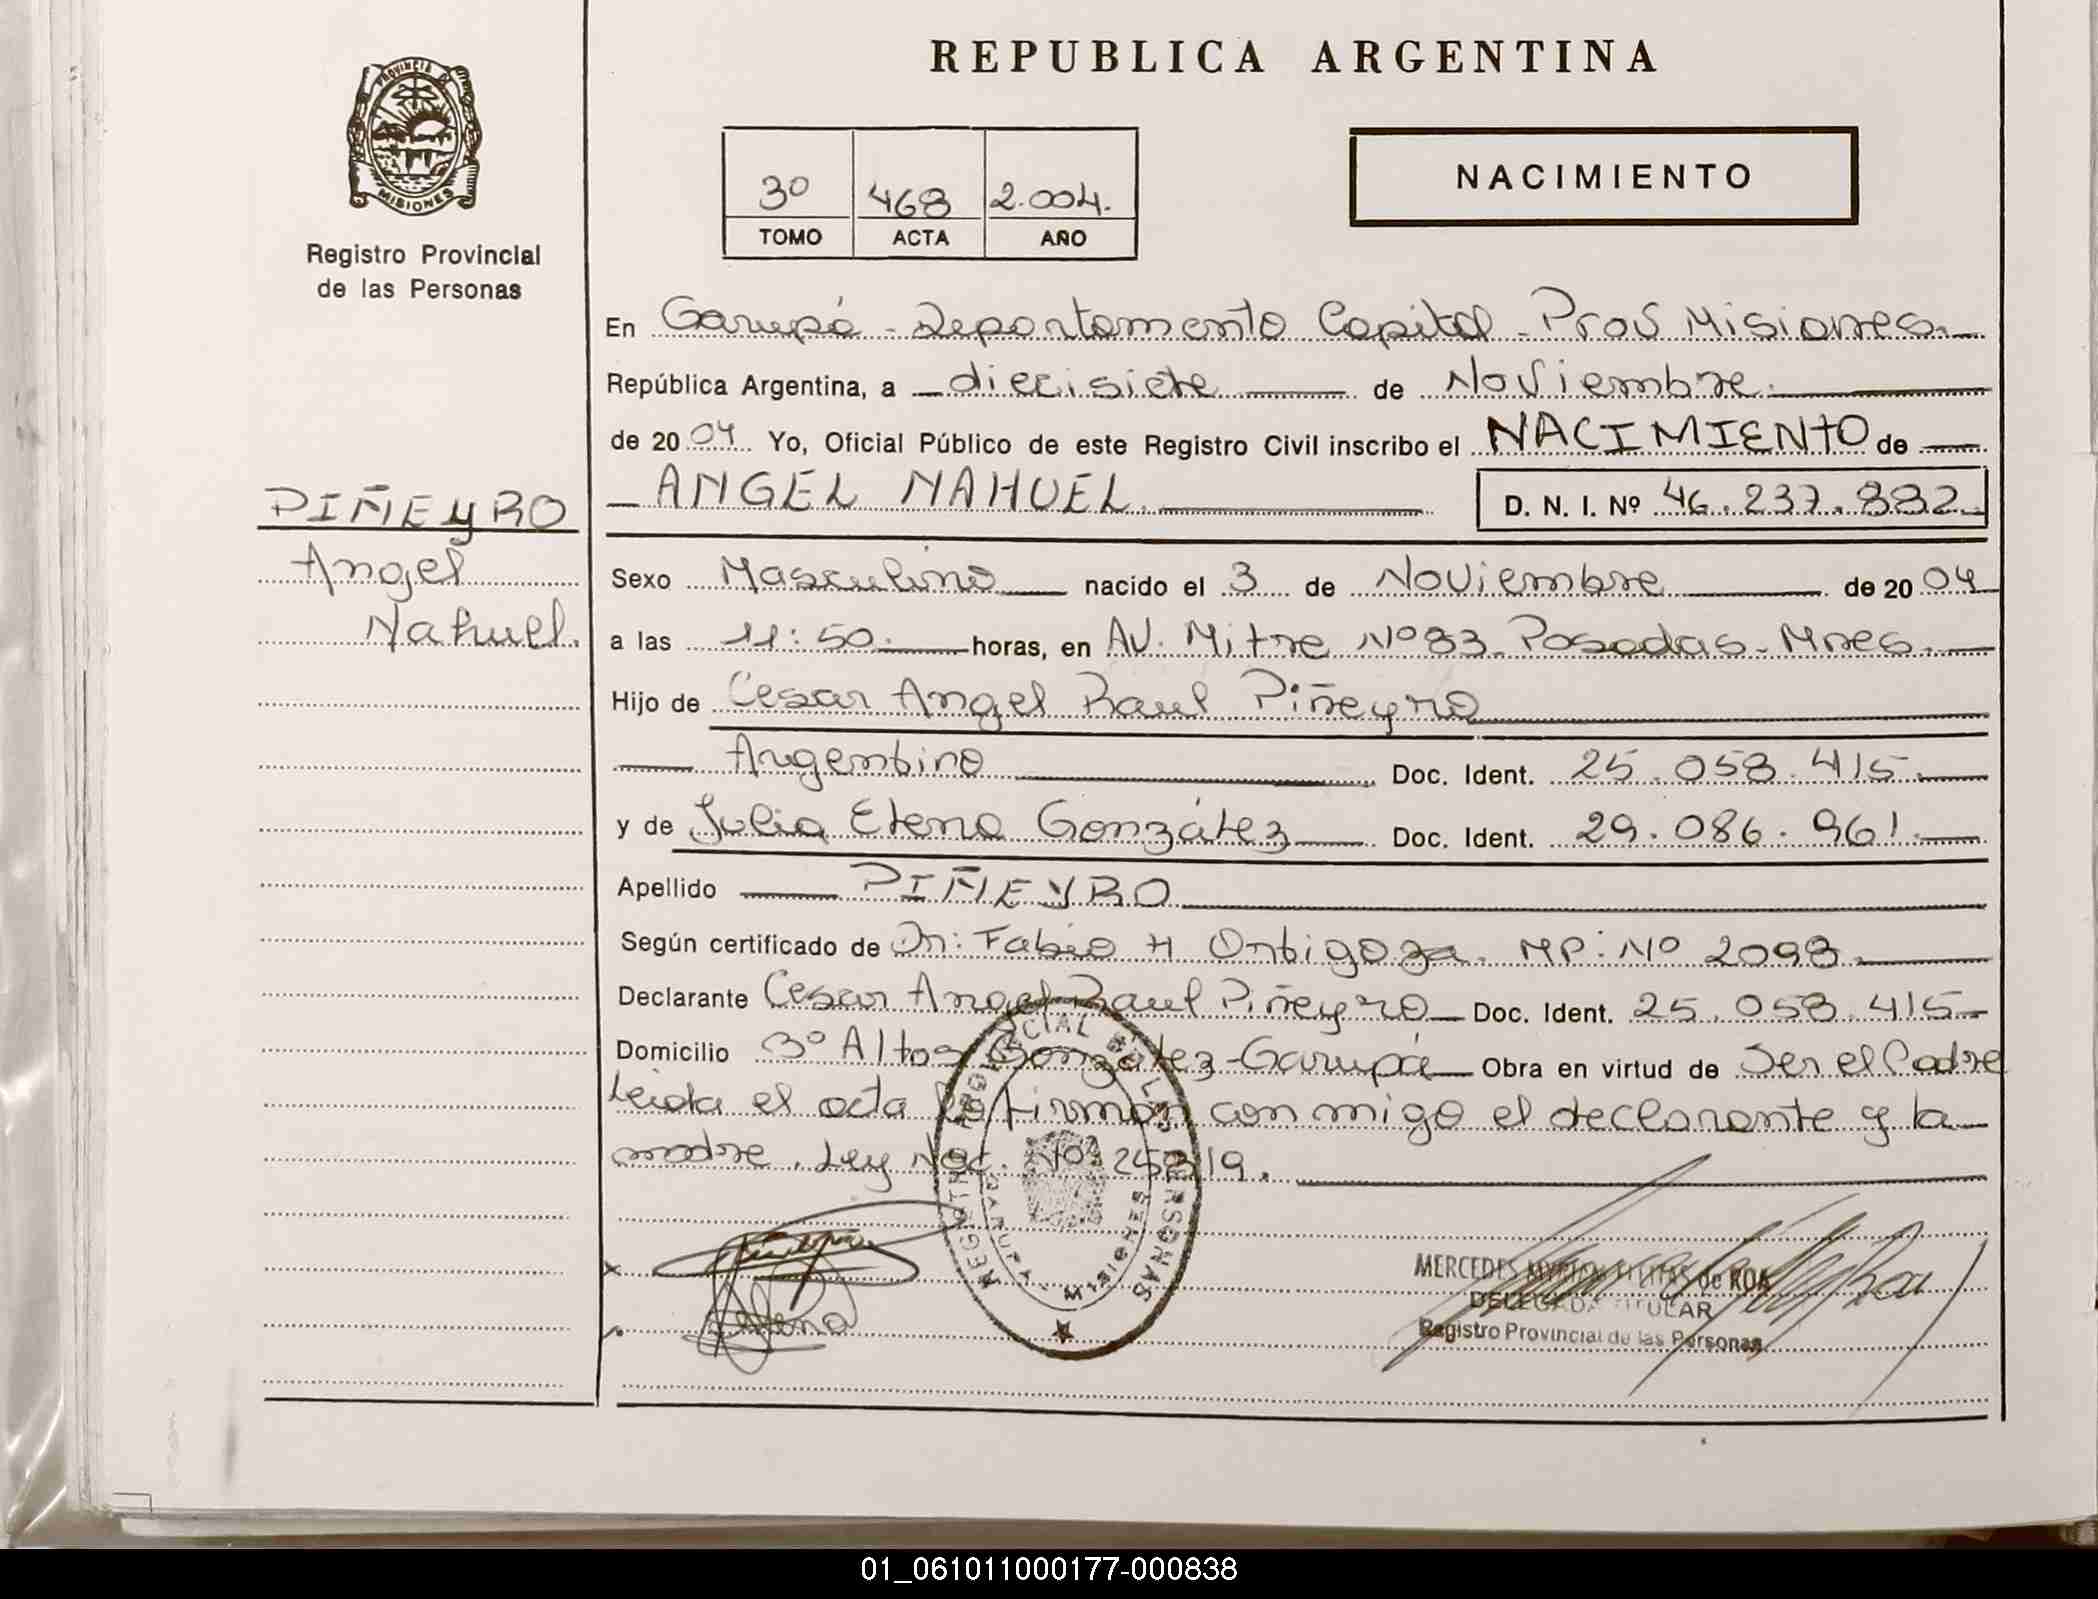 REPUBLICA ARGENTINA
PROVINCIA DE
MISIONES
Registro Provincial
de las Personas
3º 468 2.004.
TOMO ACTA AÑO
NACIMIENTO
En Garupá - Departamento Capital - Prov Misiones.
República Argentina, a diecisiete de Noviembre.
de 2004 Yo, Oficial Público de este Registro Civil inscribo el NACIMIENTO de
ANGEL NAHUEL. D. N. I. Nº 46.237.882.
PIÑEYRO
Angel
Nahuel.
Sexo Masculino nacido el 3 de Noviembre de 2004
a las 11:50. horas, en AV. Mitre Nº 83. Posadas - Mnes.
Hijo de Cesar Angel Raul Piñeyro
Argentino Doc. Ident. 25.058.415.
y de Julia Elena González Doc. Ident. 29.086.961.
Apellido PIÑEYRO
Según certificado de Dr: Fabio H Ortigoza. MP: Nº 2098.
Declarante Cesar Angel Raul Piñeyro Doc. Ident. 25.058.415
Domicilio 3º Altos González - Garupá Obra en virtud de Ser el Padre
leida el acta la firman con migo el declarante y la
madre. Ley Nac. Nº 25819.
REGISTRO PROVINCIAL DE LAS PERSONAS
GARUPA - MISIONES
MERCEDES MYRIAN de ROA
DELEGADA TITULAR
Registro Provincial de las Personas
01_061011000177-000838